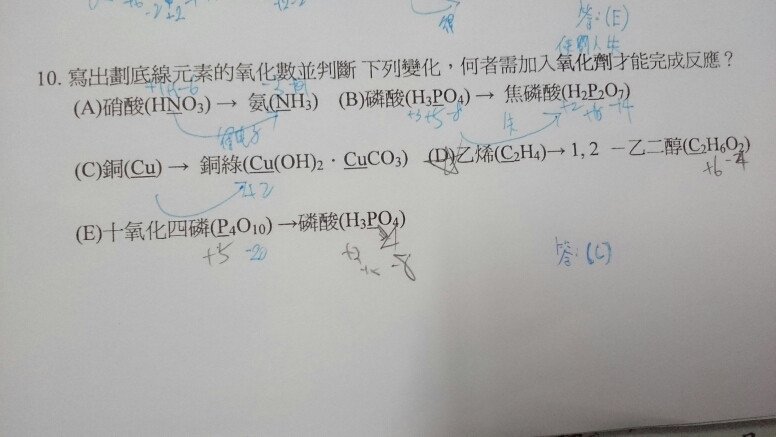 答:(E)
10. 寫出劃底線元素的氧化數並判斷 下列變化，何者需加入氧化劑才能完成反應？
(A)硝酸(HNO₃) → 氨(NH₃) (B)磷酸(H₃PO₄) → 焦磷酸(H₂P₂O₇)
+3+5-8 +2 +6 -14
得電子 失
(C)銅(Cu) → 銅綠(Cu(OH)₂·CuCO₃) (D)乙烯(C₂H₄)→ 1, 2 －乙二醇(C₂H₆O₂)
+2 +6 -4
(E)十氧化四磷(P₄O₁₀) →磷酸(H₃PO₄)
+5 -20 +3 -8
答:(C)